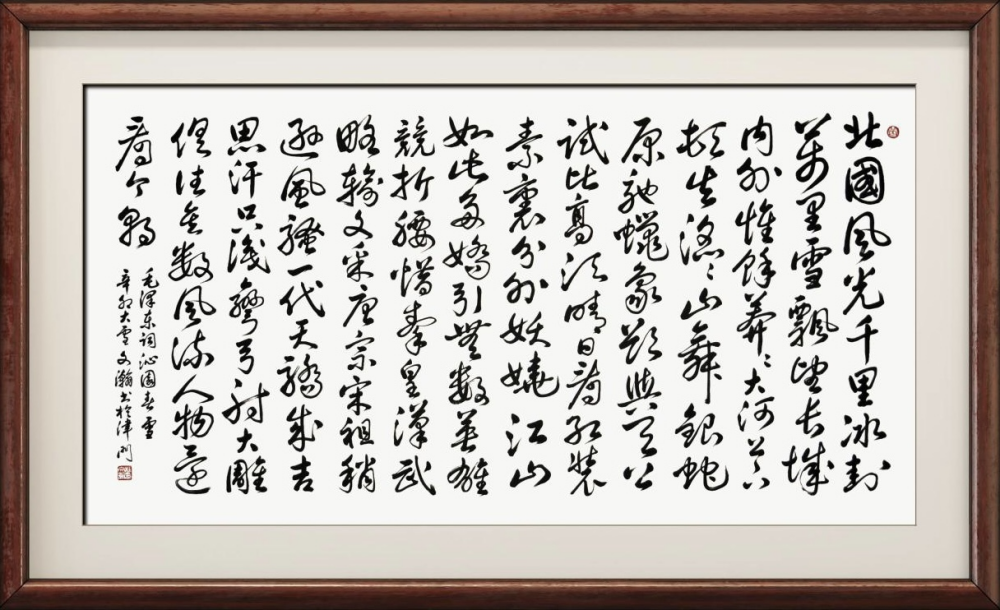 北國風光千里冰封
萬里雪飄望长城
内外惟餘莽〻大河上下
頓失滔〻山舞銀蛇
原馳蠟象欲與天公
試比高須晴日看紅裝
素裹分外妖嬈江山
如此多嬌引無數英雄
競折腰惜秦皇漢武
略輸文采唐宗宋祖稍
遜風騷一代天驕成吉
思汗只識彎弓射大雕
俱往矣数風流人物還
看今朝
毛澤东詞沁園春雪
辛卯大雪文瀚书於津门